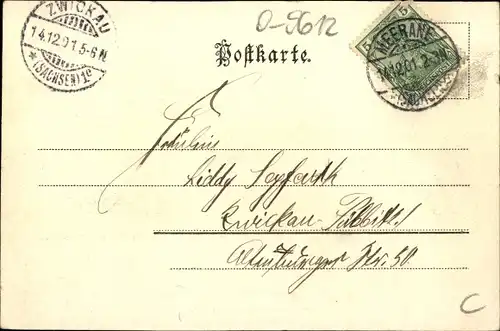 ZWICKAU
14.12.01.5-6N
*(SACHSEN)1c
O-5612
Postkarte.
5 5
MEERANE
14.12.01.2-3N
(SACHSEN)
Fräulein
Liddy Seyfarth
Zwickau-Pölbitz.
Altenburger Str. 50
C